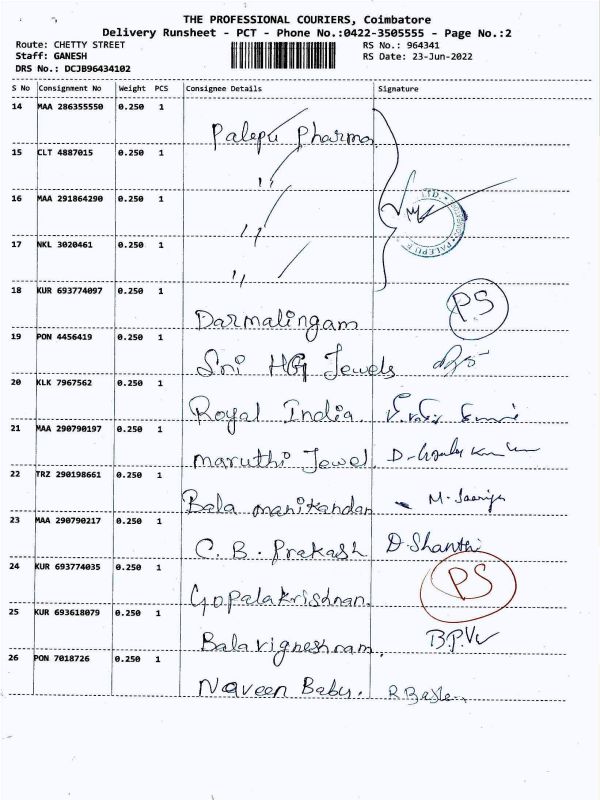 THE PROFESSIONAL COURIERS, Coimbatore
Delivery Runsheet - PCT - Phone No.:0422-3505555 - Page No.:2
Route: CHETTY STREET RS No.: 964341
Staff: GANESH RS Date: 23-Jun-2022
DRS No.: DCJB96434102
S No Consignment No Weight PCS Consignee Details Signature
14 MAA 286355550 0.250 1
Palepu Pharma
15 CLT 4887015 0.250 1
"
16 MAA 291864290 0.250 1
"
LTD.
17 NKL 3020461 0.250 1
"
18 KUR 693774097 0.250 1
Darmalingam PS
19 PON 4456419 0.250 1
Sri HG Jewels
20 KLK 7967562 0.250 1
Royal India.
21 MAA 290790197 0.250 1
maruthi Jewel
22 TRZ 290198661 0.250 1
Bala manikandan
23 MAA 290790217 0.250 1
C. B. Prakash D. Shanthi
24 KUR 693774035 0.250 1
Gopalakrisdnan. PS
25 KUR 693618079 0.250 1
Balavigneshram.
26 PON 7018726 0.250 1
Naveen Babu.